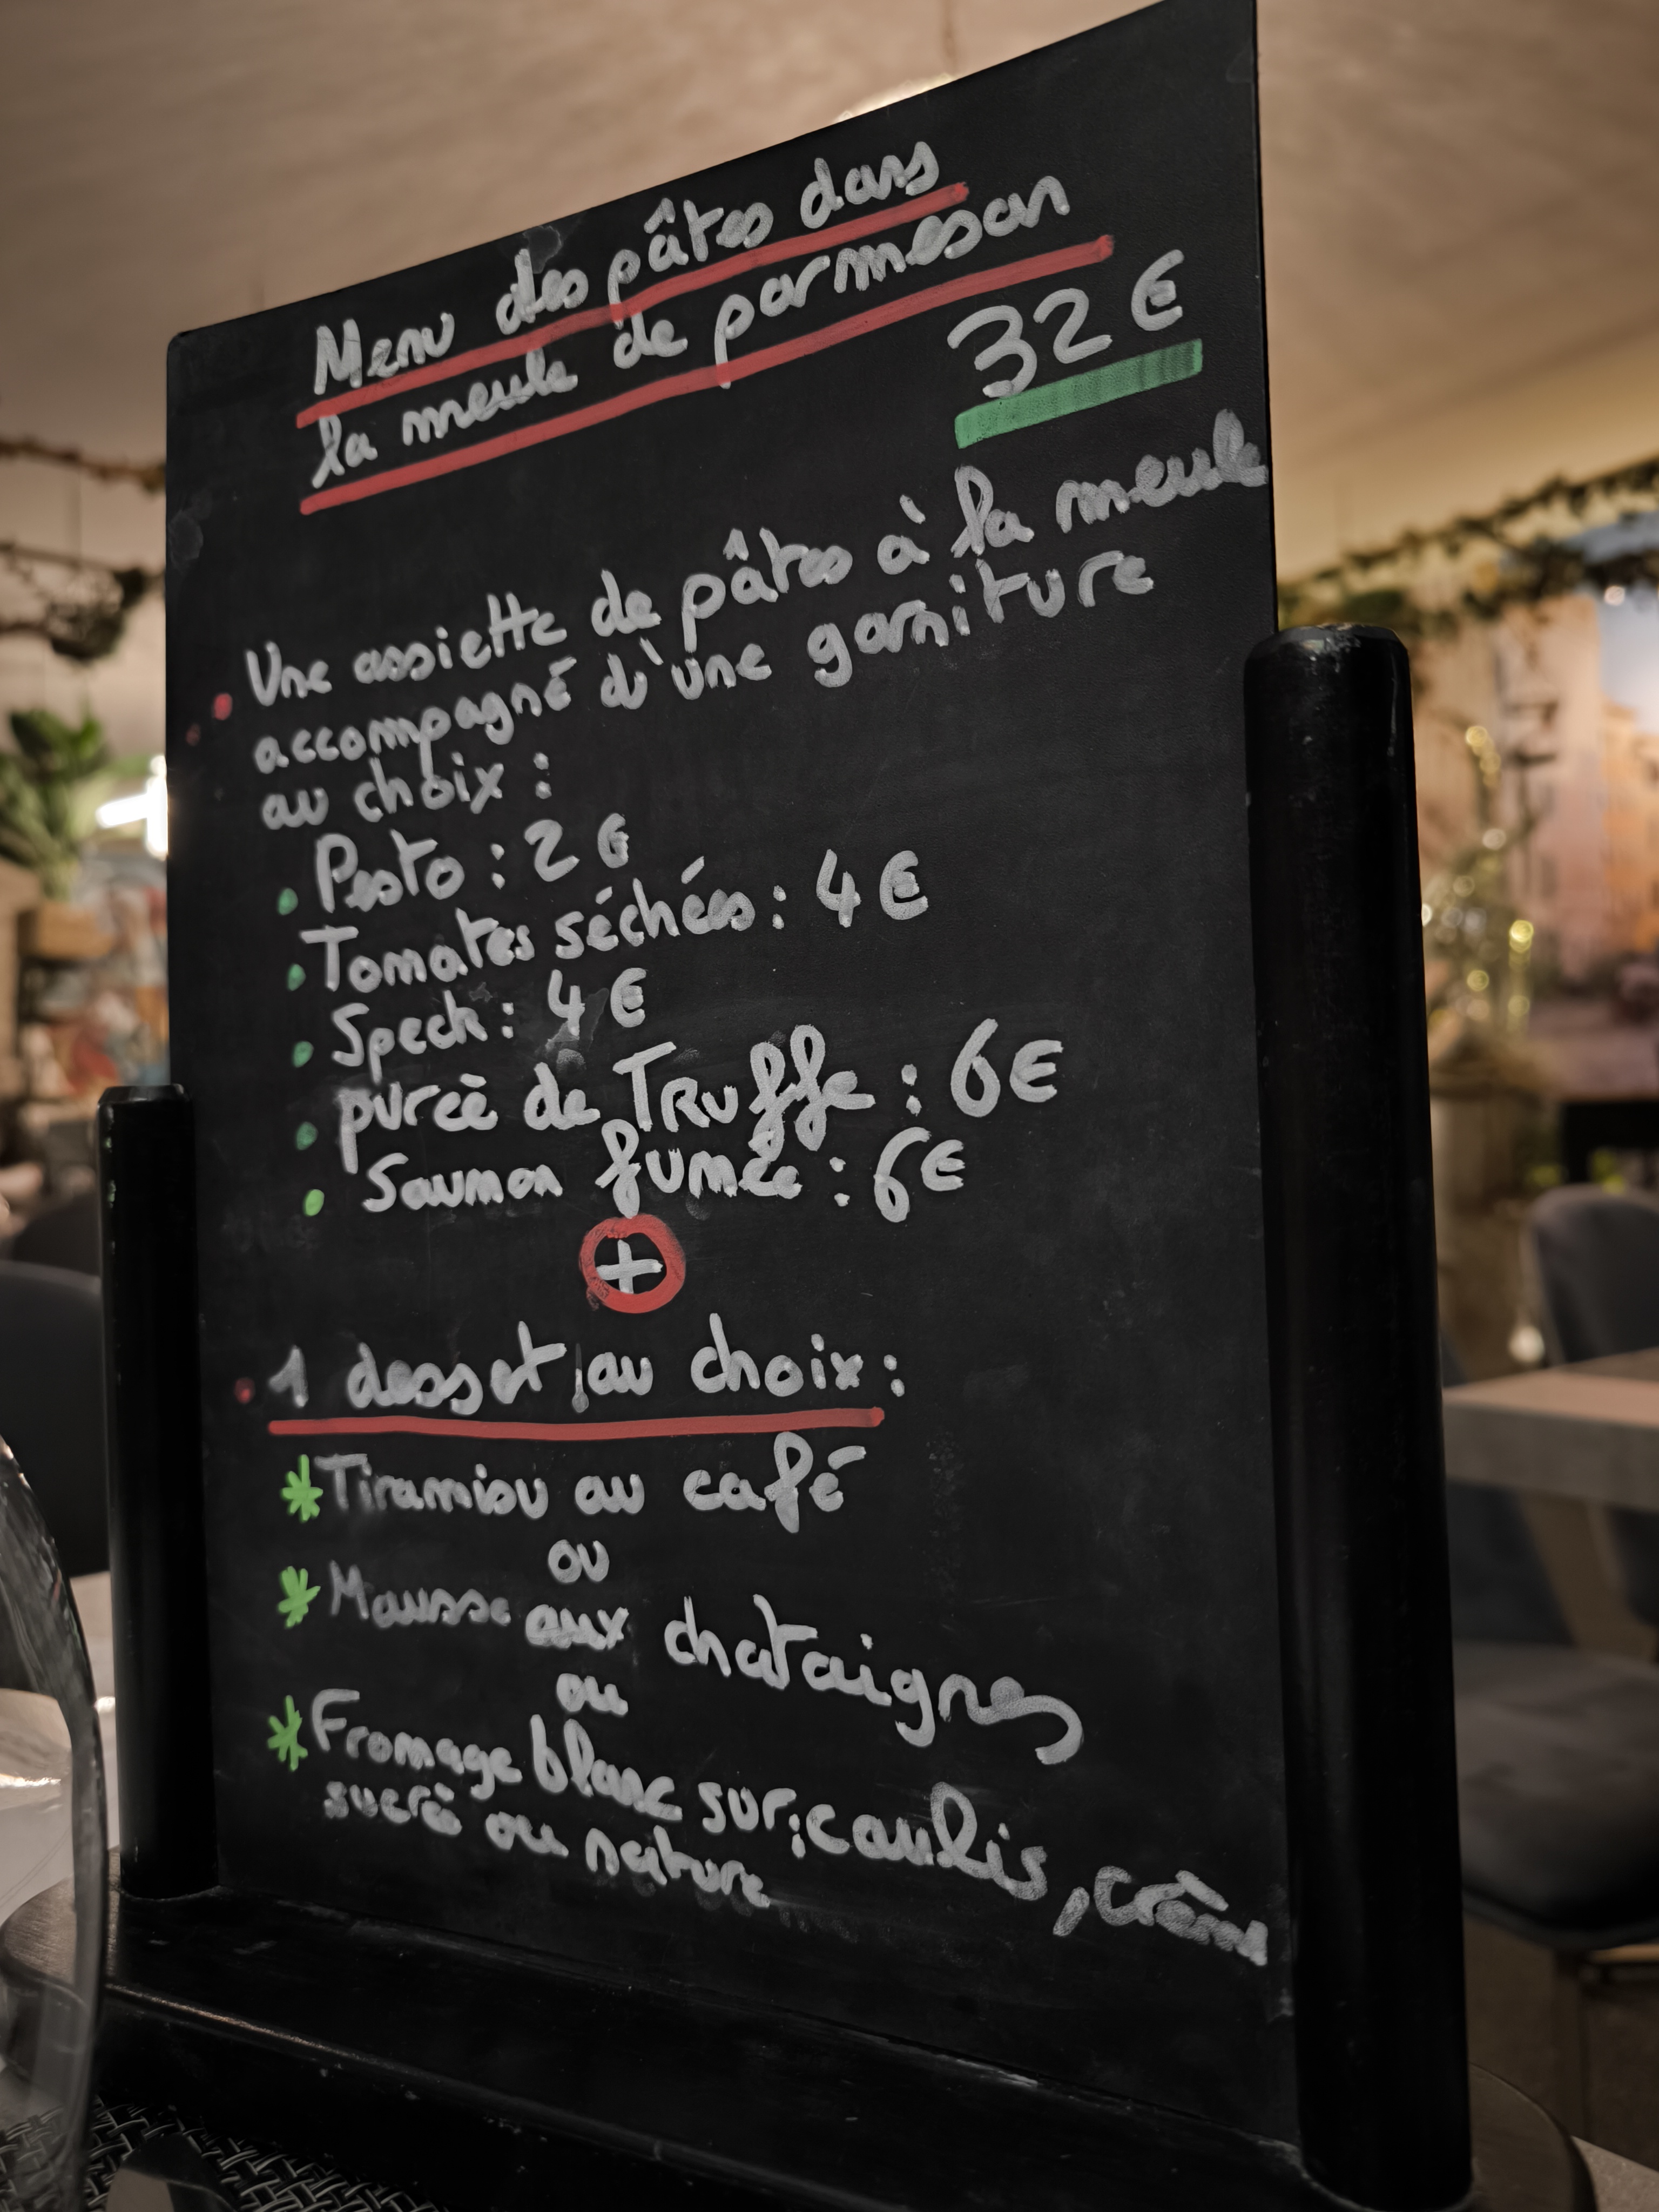 Menu des pâtes dans
la meule de parmesan
32 €
Une assiette de pâtes à la meule
accompagné d'une garniture
au choix :
Pesto : 2 €
Tomates séchées : 4 €
Speck : 4 €
purèè de TRuffe : 6€
Saumon fumée : 6€
+
1 dessert au choix :
* Tiramisu au café
ou
* Mousse aux chataignes
ou
* Fromage blanc sur : coulis, crème
sucrè ou nature